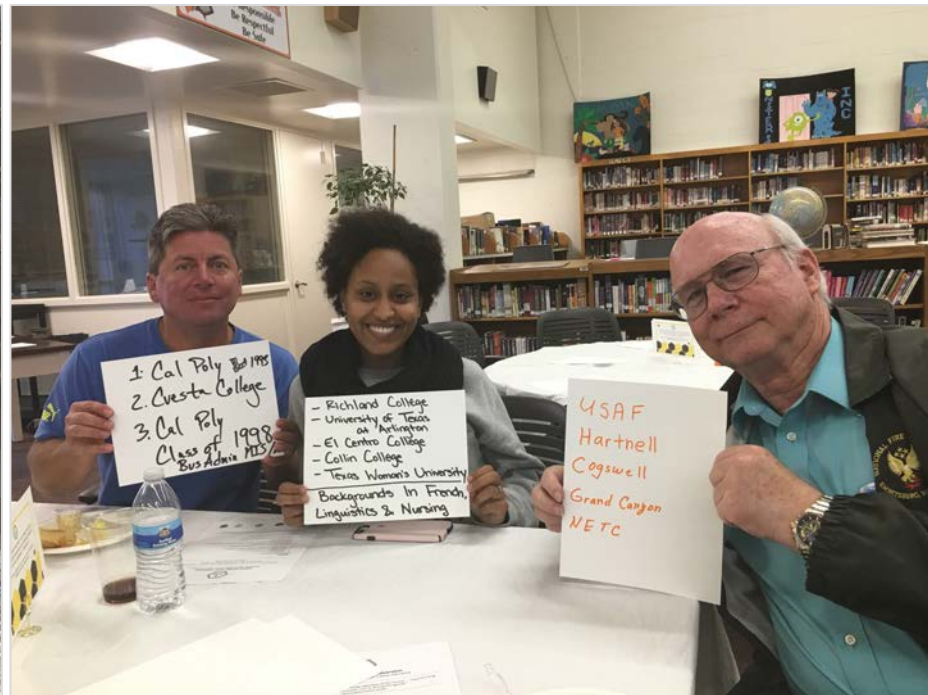 Responsible
Be Respectful
Be Safe
INC
1. Cal Poly 1995
2. Cuesta College
3. Cal Poly
Class of 1998
Bus Admin MIS
- Richland College
- University of Texas
at Arlington
- El Centro College
- Collin College
- Texas Woman's University
Backgrounds In French,
Linguistics & Nursing
USAF
Hartnell
Cogswell
Grand Canyon
NETC
NATIONAL FIRE
EMMITSBURG,